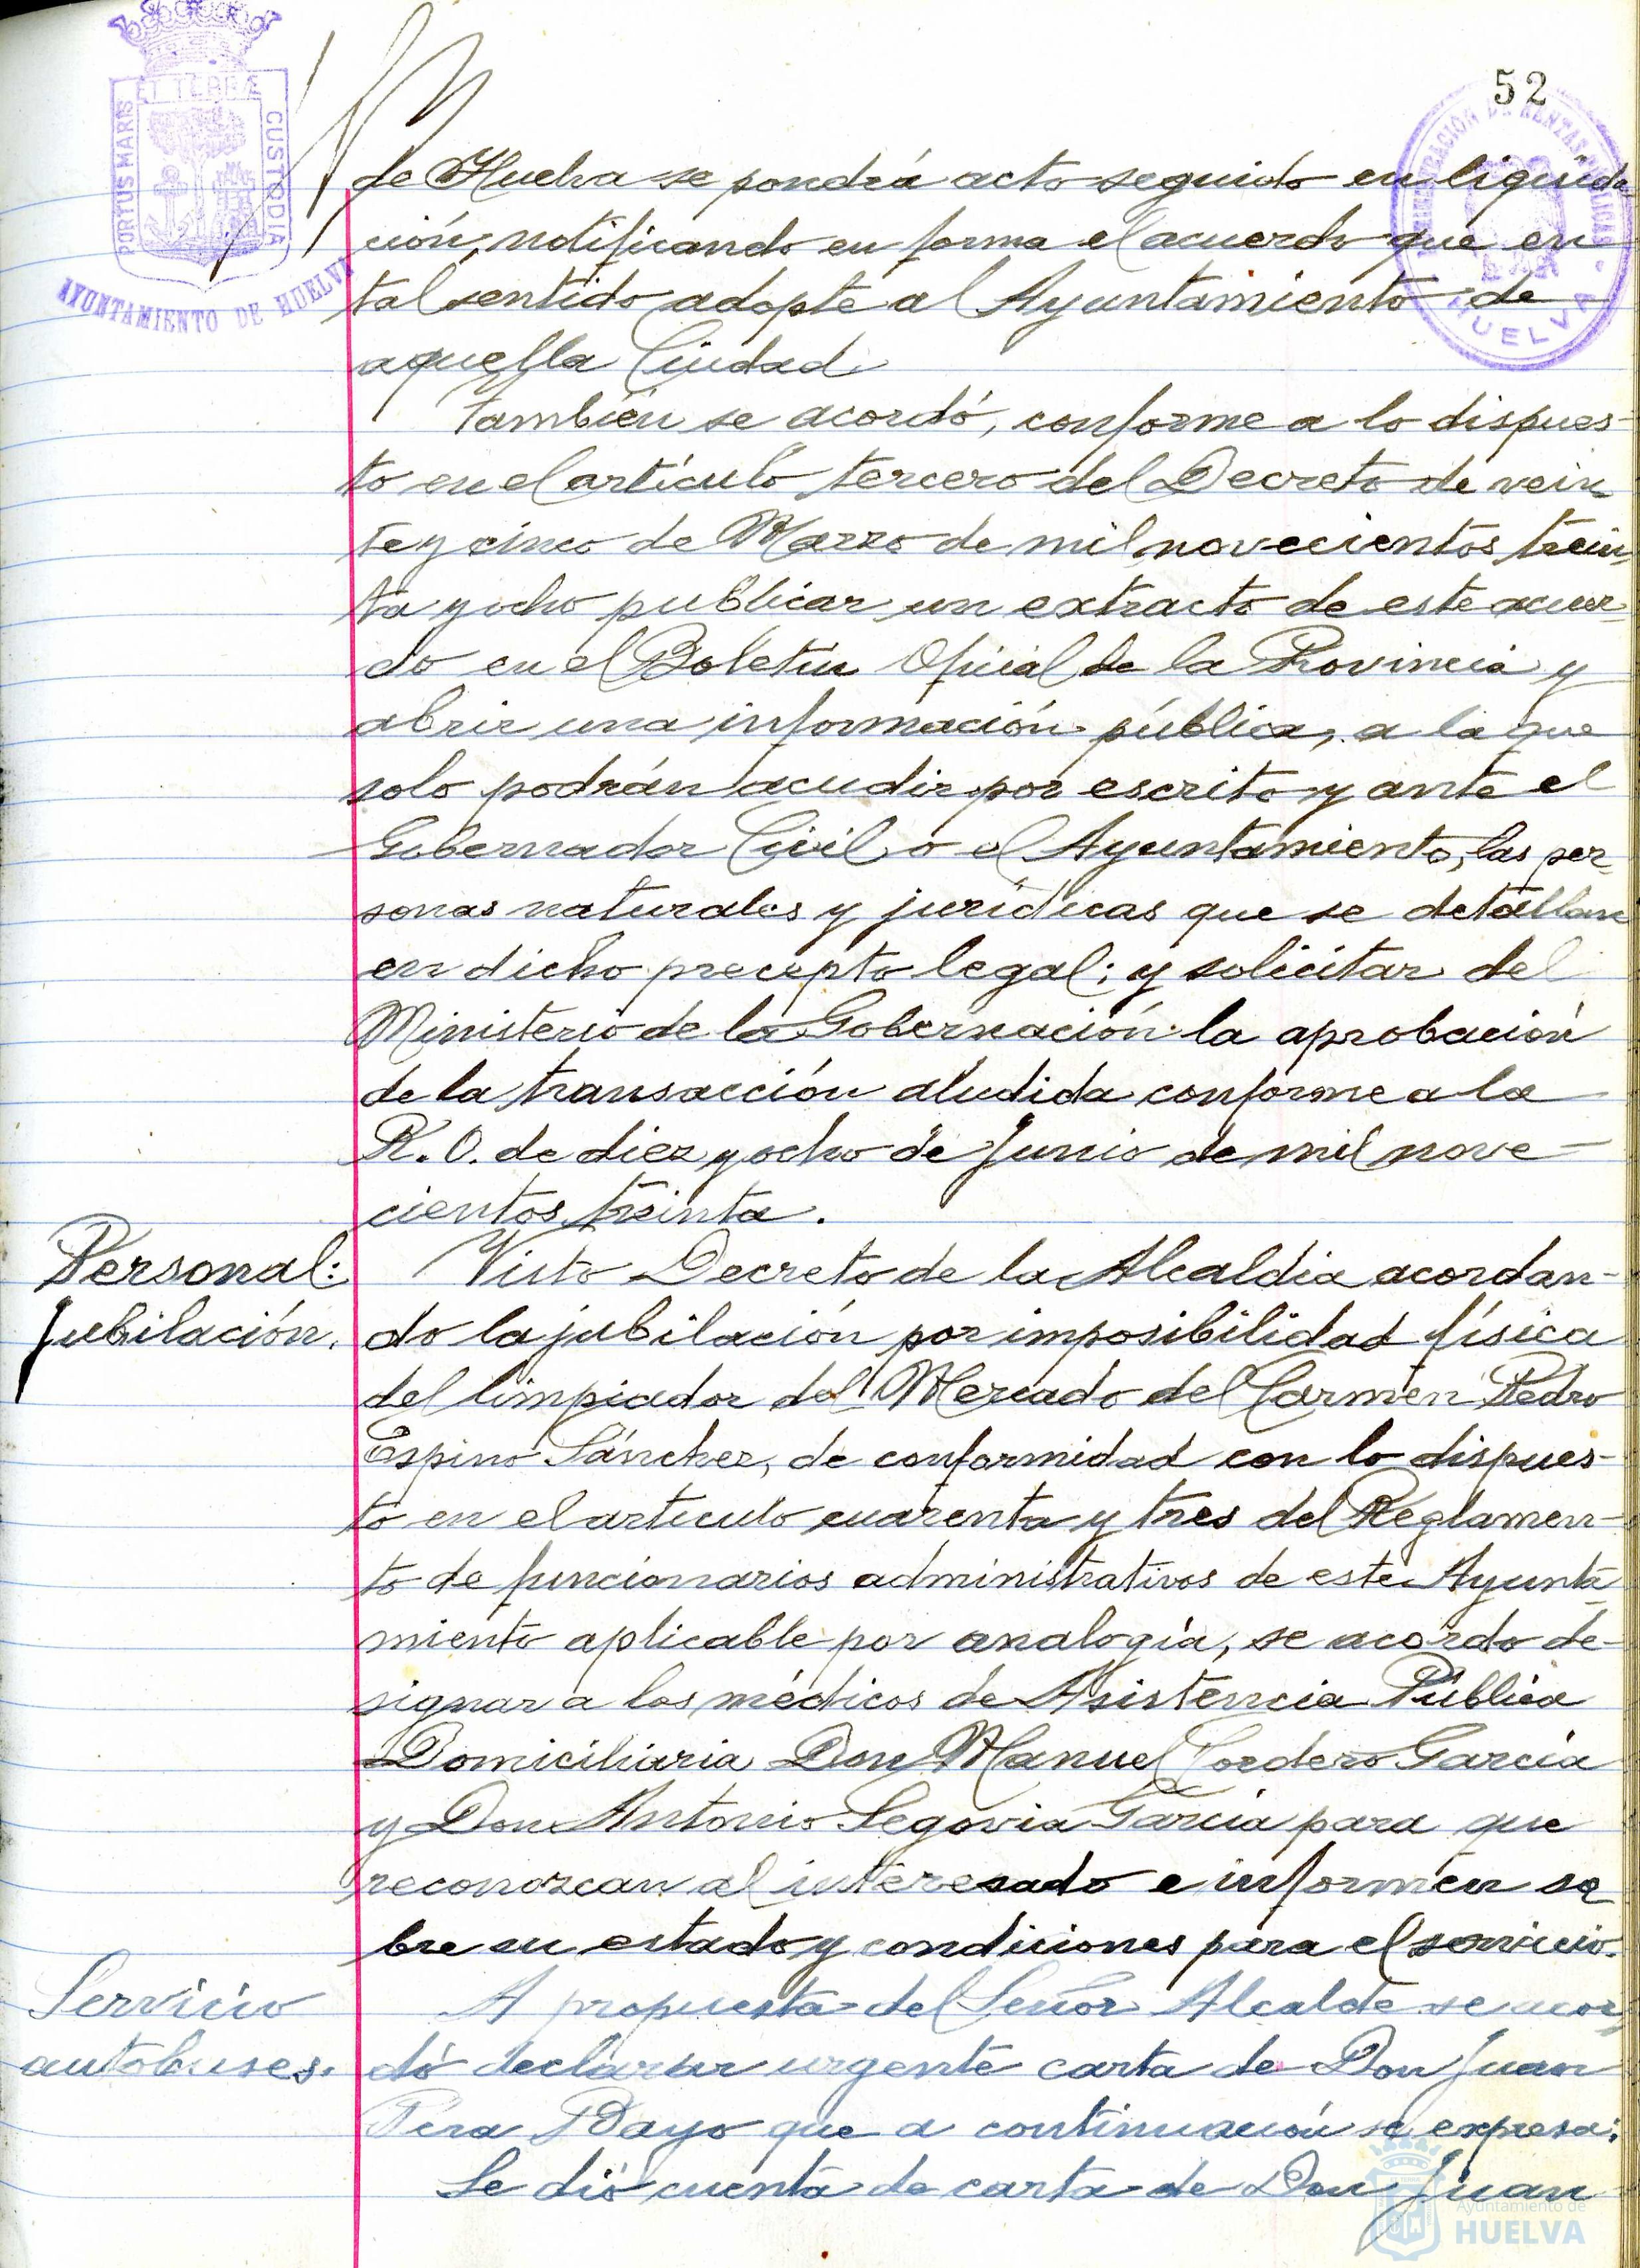 52
ET TERRÆ
PORTUS MARIS
CUSTODIA
AYUNTAMIENTO DE HUELVA
ADMINISTRACIÓN DE RENTAS PÚBLICAS
HUELVA
de Huelva se pondrá acto seguido en liquida
ción, notificando en forma el acuerdo que en
tal sentido adopte al Ayuntamiento de
aquella Ciudad.
También se acordó, conforme a lo dispues-
to en el artículo tercero del Decreto de vein
te y cinco de Marzo de mil novecientos trein
ta y ocho publicar un extracto de este acuer
do en el Boletín Oficial de la Provincia y
abrir una información pública, a la que
solo podrán acudir por escrito y ante el
Gobernador Civil o el Ayuntamiento, las per
sonas naturales y jurídicas que se detallan
en dicho precepto legal; y solicitar del
Ministerio de la Gobernación la aprobación
de la transacción aludida conforme a la
R. O. de diez y ocho de Junio de mil nove-
cientos treinta.
Personal:
Jubilación.
Visto Decreto de la Alcaldía acordan-
do la jubilación por imposibilidad física
del limpiador del Mercado del Carmen Pedro
Espino Sánchez, de conformidad con lo dispues-
to en el artículo cuarenta y tres del Reglamen-
to de funcionarios administrativos de este Ayunta
miento aplicable por analogía, se acordo de-
signar a los médicos de Asistencia Pública
Domiciliaria Don Manuel Cordero García
y Don Antonio Segovia García para que
reconozcan al interesado e informen so
bre su estado y condiciones para el servicio.
Servicio
autobuses.
A propuesta del Señor Alcalde se acor
dó declarar urgente carta de Don Juan
Pera Bayo que a continuación se expresa:
Se dió cuenta de carta de Don Juan
Ayuntamiento de
HUELVA